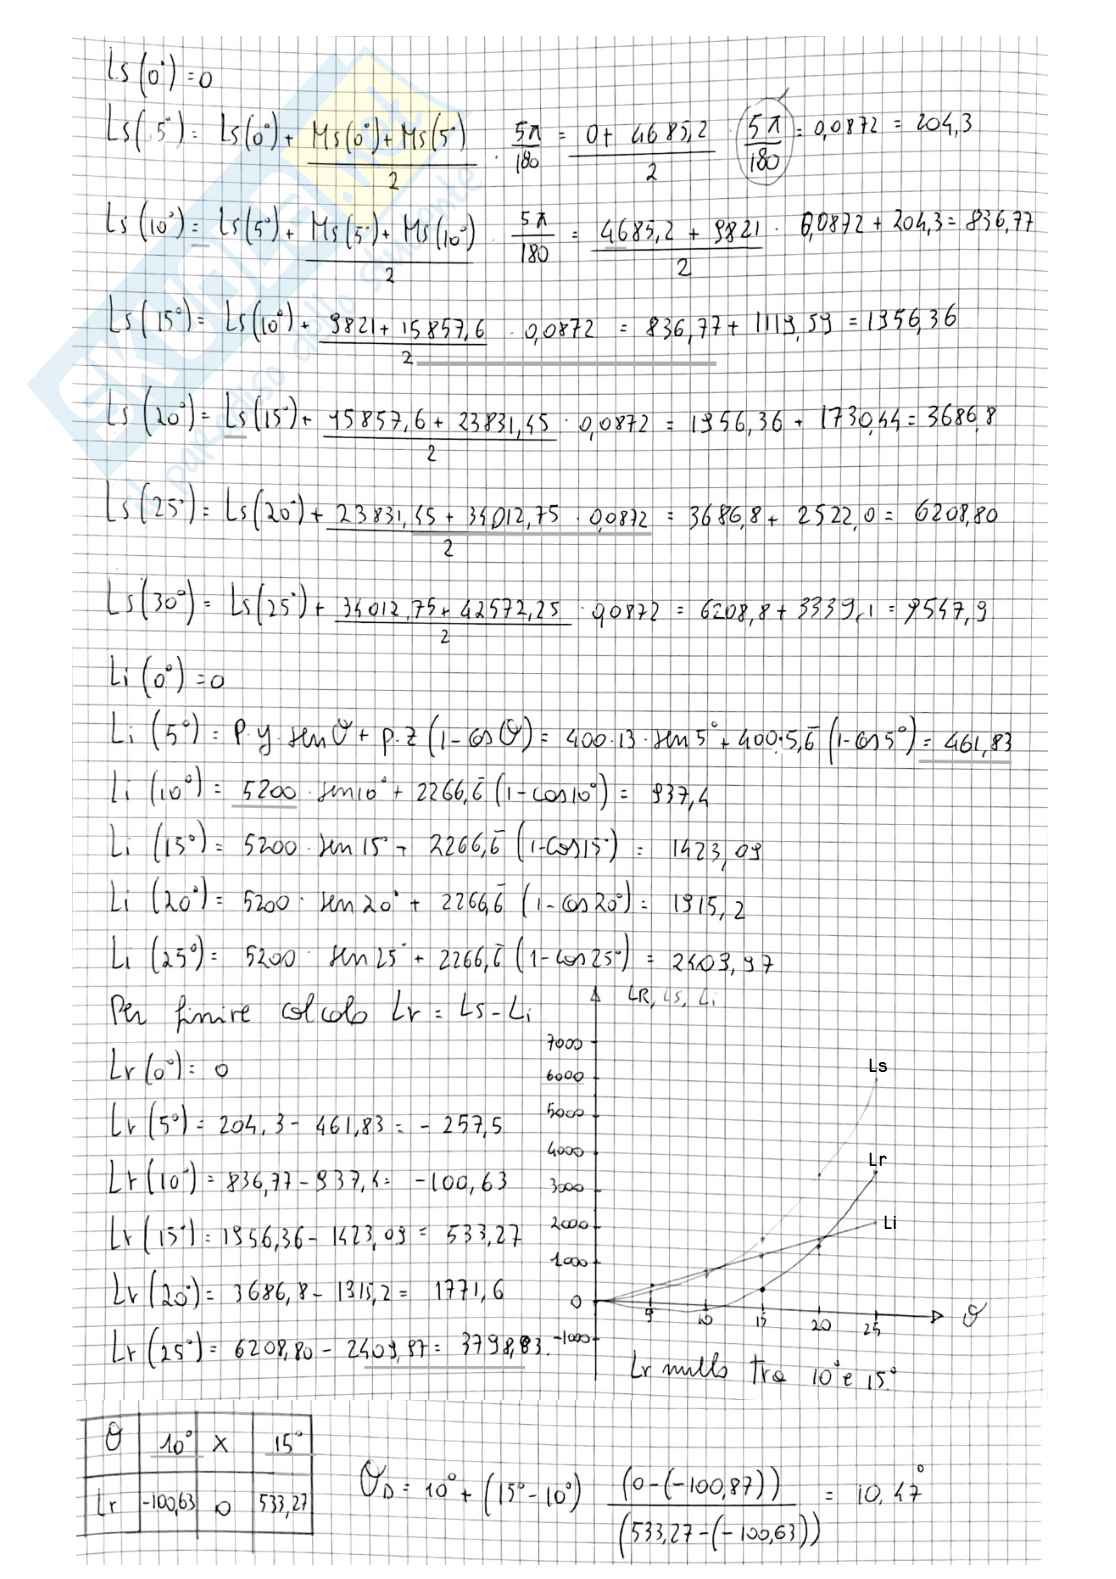 Ls(0°)=0
Ls(5°)= Ls(0°)+ (Ms(0°)+Ms(5°))/2 · 5π/180 = (0+4685,2)/2 · 5π/180 = 0,0872 = 204,3
Ls(10°)= Ls(5°)+ (Ms(5°)+Ms(10°))/2 · 5π/180 = (4685,2+9821)/2 · 0,0872+204,3=836,77
Ls(15°)= Ls(10°)+ (9821+15857,6)/2 · 0,0872 = 836,77+1119,59=1956,36
Ls(20°)= Ls(15°)+ (15857,6+23831,45)/2 · 0,0872 = 1956,36+1730,44=3686,8
Ls(25°)= Ls(20°)+ (23831,45+34012,75)/2 · 0,0872 = 3686,8+2522,0= 6208,80
Ls(30°)= Ls(25°)+ (34012,75+42572,25)/2 · 0,0872 = 6208,8+3339,1=9547,9
Li(0°)=0
Li(5°)= P·y·senϑ+p·z(1-cosϑ)= 400·13·sen5°+400·5,6̄(1-cos5°)= 461,83
Li(10°)= 5200·sen10°+2266,6̄(1-cos10°)= 937,4
Li(15°)= 5200·sen15°+2266,6̄(1-cos15°)= 1423,09
Li(20°)= 5200·sen20°+2266,6̄(1-cos20°)= 1915,2
Li(25°)= 5200·sen25°+2266,6̄(1-cos25°)= 2409,97
Per finire calcolo Lr=Ls-Li
Lr(0°)= 0
Lr(5°)= 204,3-461,83=-257,5
Lr(10°)=836,77-937,4= -100,63
Lr(15°)=1956,36-1423,09= 533,27
Lr(20°)= 3686,8-1915,2= 1771,6
Lr(25°)= 6208,80-2409,97= 3798,83.
LR, Ls, Li
7000
6000
5000
4000
3000
2000
1000
0
-1000
5 10 15 20 25 ϑ
Ls
Lr
Li
Lr nullo tra 10° e 15°
ϑ 10° X 15°
Lr -100,63 0 533,27
ϑD=10°+(15°-10°) (0-(-100,87))/(533,27-(-100,63)) = 10,47°
SKUOLA.net